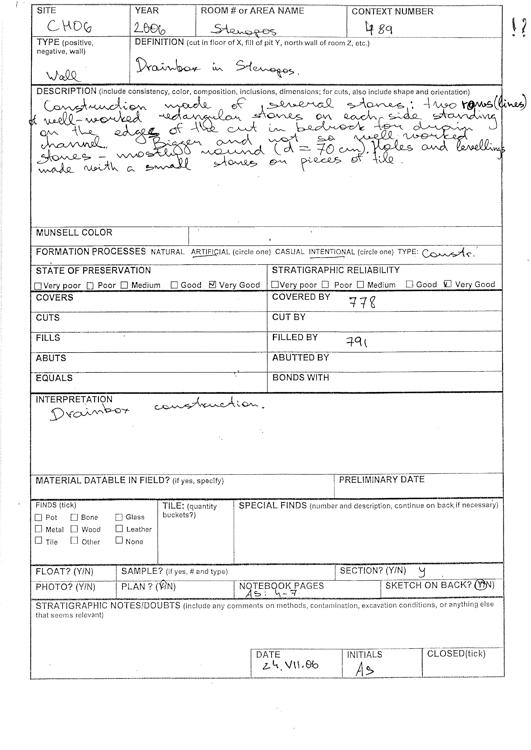 SITE YEAR ROOM # or AREA NAME CONTEXT NUMBER
CHO6 2006 Stenopos 489 !?
TYPE (positive, negative, wall) DEFINITION (cut in floor of X, fill of pit Y, north wall of room Z, etc.)
Wall Drainbox in Stenopos.
DESCRIPTION (include consistency, color, composition, inclusions, dimensions; for cuts, also include shape and orientation)
Construction made of several stones: two rows (lines)
of well-worked rectangular stones on each side standing
on the edges of the cut in bedrock for
channel. Bigger and not so well worked
stones - mostly round (d = 70 cm). Holes and levellings
made with a small stones on pieces of tile.
MUNSELL COLOR
FORMATION PROCESSES NATURAL ARTIFICIAL (circle one) CASUAL INTENTIONAL (circle one) TYPE: Constr.
STATE OF PRESERVATION STRATIGRAPHIC RELIABILITY
☐ Very poor ☐ Poor ☐ Medium ☐ Good ☑ Very Good ☐ Very poor ☐ Poor ☐ Medium ☐ Good ☑ Very Good
COVERS COVERED BY 778
CUTS CUT BY
FILLS FILLED BY 791
ABUTS ABUTTED BY
EQUALS BONDS WITH
INTERPRETATION
Drainbox construction.
MATERIAL DATABLE IN FIELD? (if yes, specify) PRELIMINARY DATE
FINDS (tick) TILE: (quantity buckets?) SPECIAL FINDS (number and description, continue on back if necessary)
☐ Pot ☐ Bone ☐ Glass
☐ Metal ☐ Wood ☐ Leather
☐ Tile ☐ Other ☐ None
FLOAT? (Y/N) SAMPLE? (if yes, # and type) SECTION? (Y/N) y
PHOTO? (Y/N) PLAN? (Y/N) NOTEBOOK PAGES SKETCH ON BACK? (Y/N)
AS: 4-7
STRATIGRAPHIC NOTES/DOUBTS (include any comments on methods, contamination, excavation conditions, or anything else
that seems relevant)
DATE INITIALS CLOSED(tick)
24.VII.06 AS